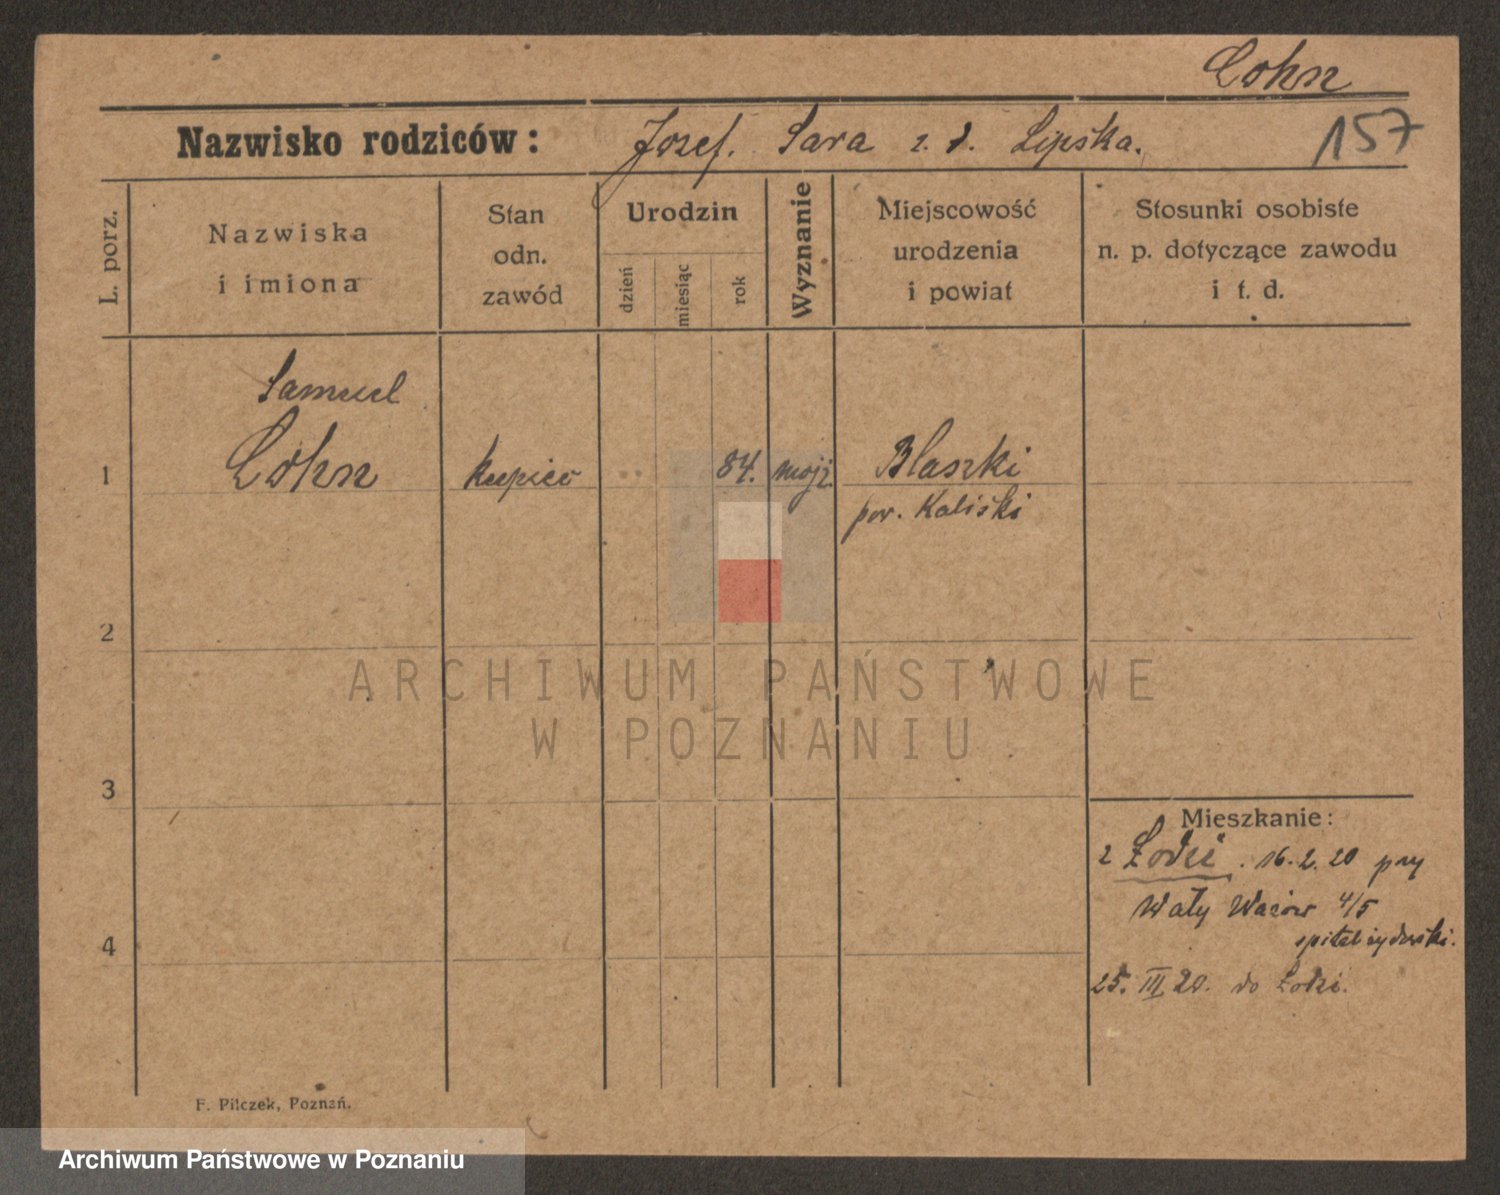 Cohn
Nazwisko rodziców: Jozef. Sara z. d. Lipska.
157
L. porz.
Nazwiska
i imiona
Stan
odn.
zawód
Urodzin
dzień
miesiąc
rok
Wyznanie
Miejscowość
urodzenia
i powiat
Stosunki osobiste
n. p. dotyczące zawodu
i t. d.
Samuel
1 Cohn kupiec 84. mojż. Blaszki
pow. Kaliski
2
ARCHIWUM PAŃSTWOWE
W POZNANIU
3
Mieszkanie:
z Łodzi. 16. 2. 20 przy
Wały Wazów 4/5
szpital żydowski.
4
25. III 20. do Łodzi.
F. Pilczek, Poznań.
Archiwum Państwowe w Poznaniu